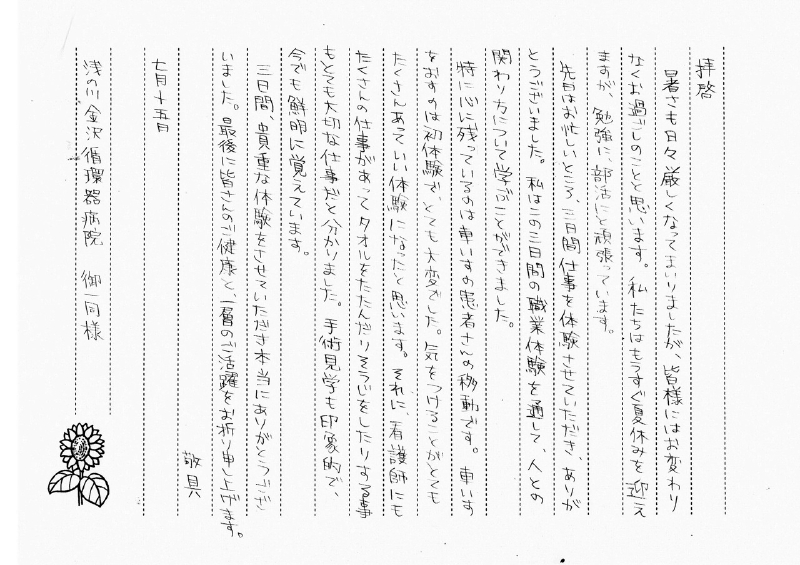 拝啓
暑さも日々厳しくなってまいりましたが、皆様にはお変わり
なくお過ごしのことと思います。私たちはもうすぐ夏休みを迎え
ますが、勉強に、部活にと頑張っています。
先日はお忙しいところ、三日間仕事を体験させていただき、ありが
とうございました。私はこの三日間の職業体験を通して、人との
関わり方について学ぶことができました。
特に心に残っているのは車いすの患者さんの移動です。車いす
をおすのは初体験で、とても大変でした。気をつけることがとても
たくさんあっていい体験になったと思います。それに看護師にも
たくさんの仕事があってタオルをたたんだりそうじをしたりする事
もとても大切な仕事だと分かりました。手術見学も印象的で、
今でも鮮明に覚えています。
三日間、貴重な体験をさせていただき本当にありがとうござ
いました。最後に皆さんのご健康と一層のご活躍をお祈り申し上げます。
敬具
七月十五日
浅の川金沢循環器病院 御一同様